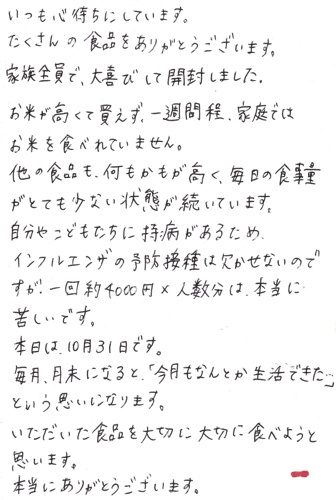 いつも心待ちにしています。
たくさんの食品をありがとうございます。
家族全員で、大喜びして開封しました。
お米が高くて買えず、一週間程、家庭では
お米を食べれていません。
他の食品も、何もかもが高く、毎日の食事量
がとても少ない状態が続いています。
自分やこどもたちに持病があるため、
インフルエンザの予防接種は欠かせないので
すが、一回約4000円×人数分は、本当に
苦しいです。
本日は、10月31日です。
毎月、月末になると、「今月もなんとか生活できた」
という思いになります。
いただいた食品を大切に大切に食べようと
思います。
本当にありがとうございます。